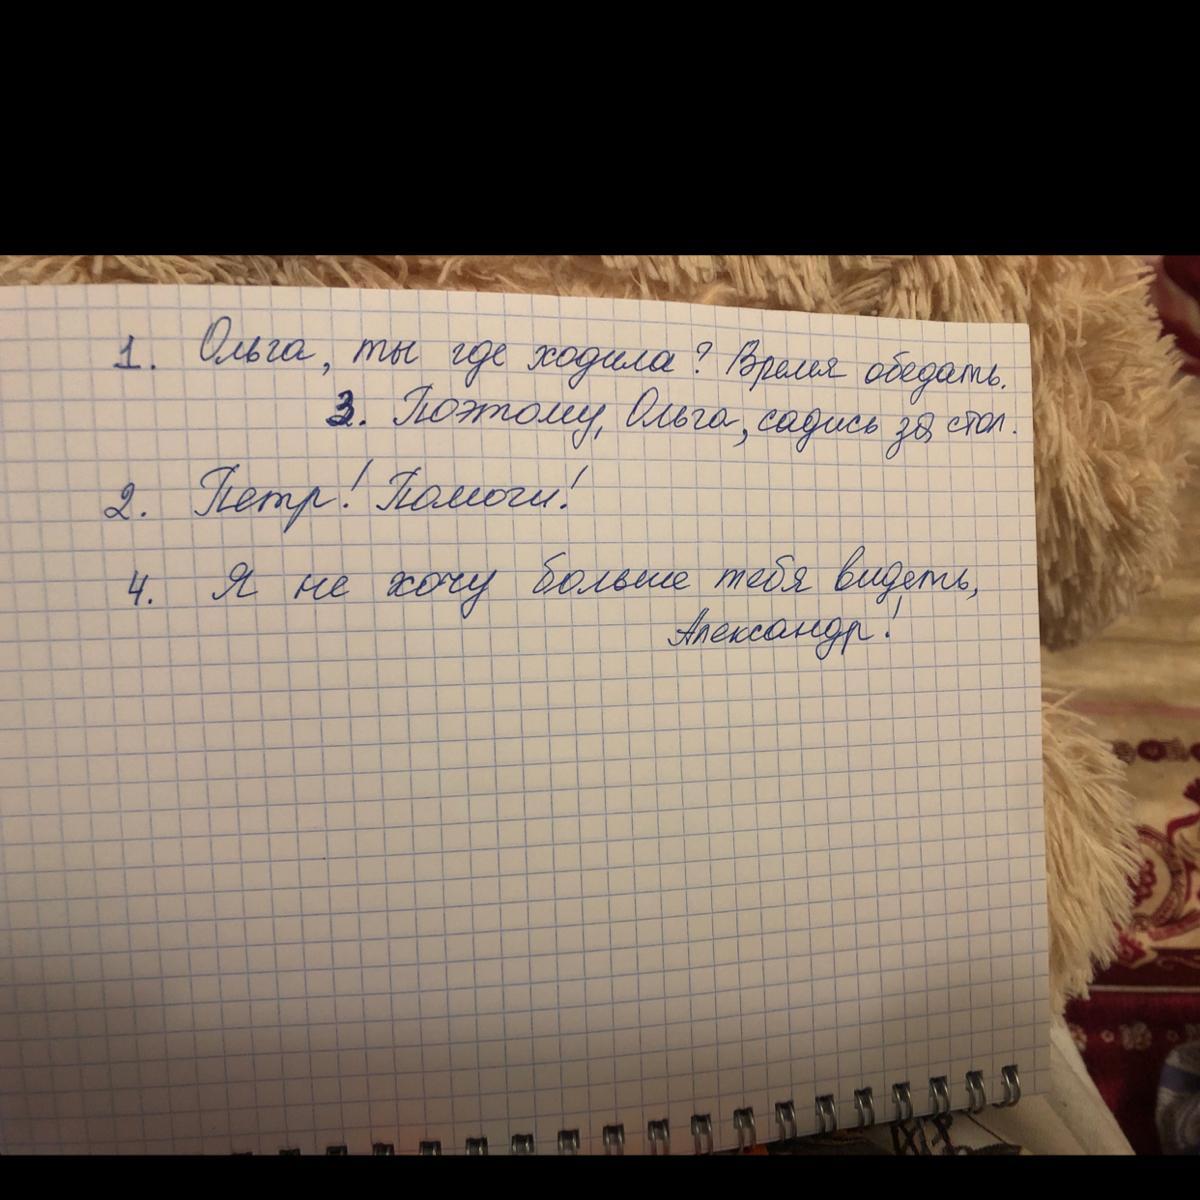 1. Ольга, ты где ходила? Время обедать.
3. Поэтому, Ольга, садись за стол.
2. Петр! Помоги!
4. Я не хочу больше тебя видеть,
Александр!